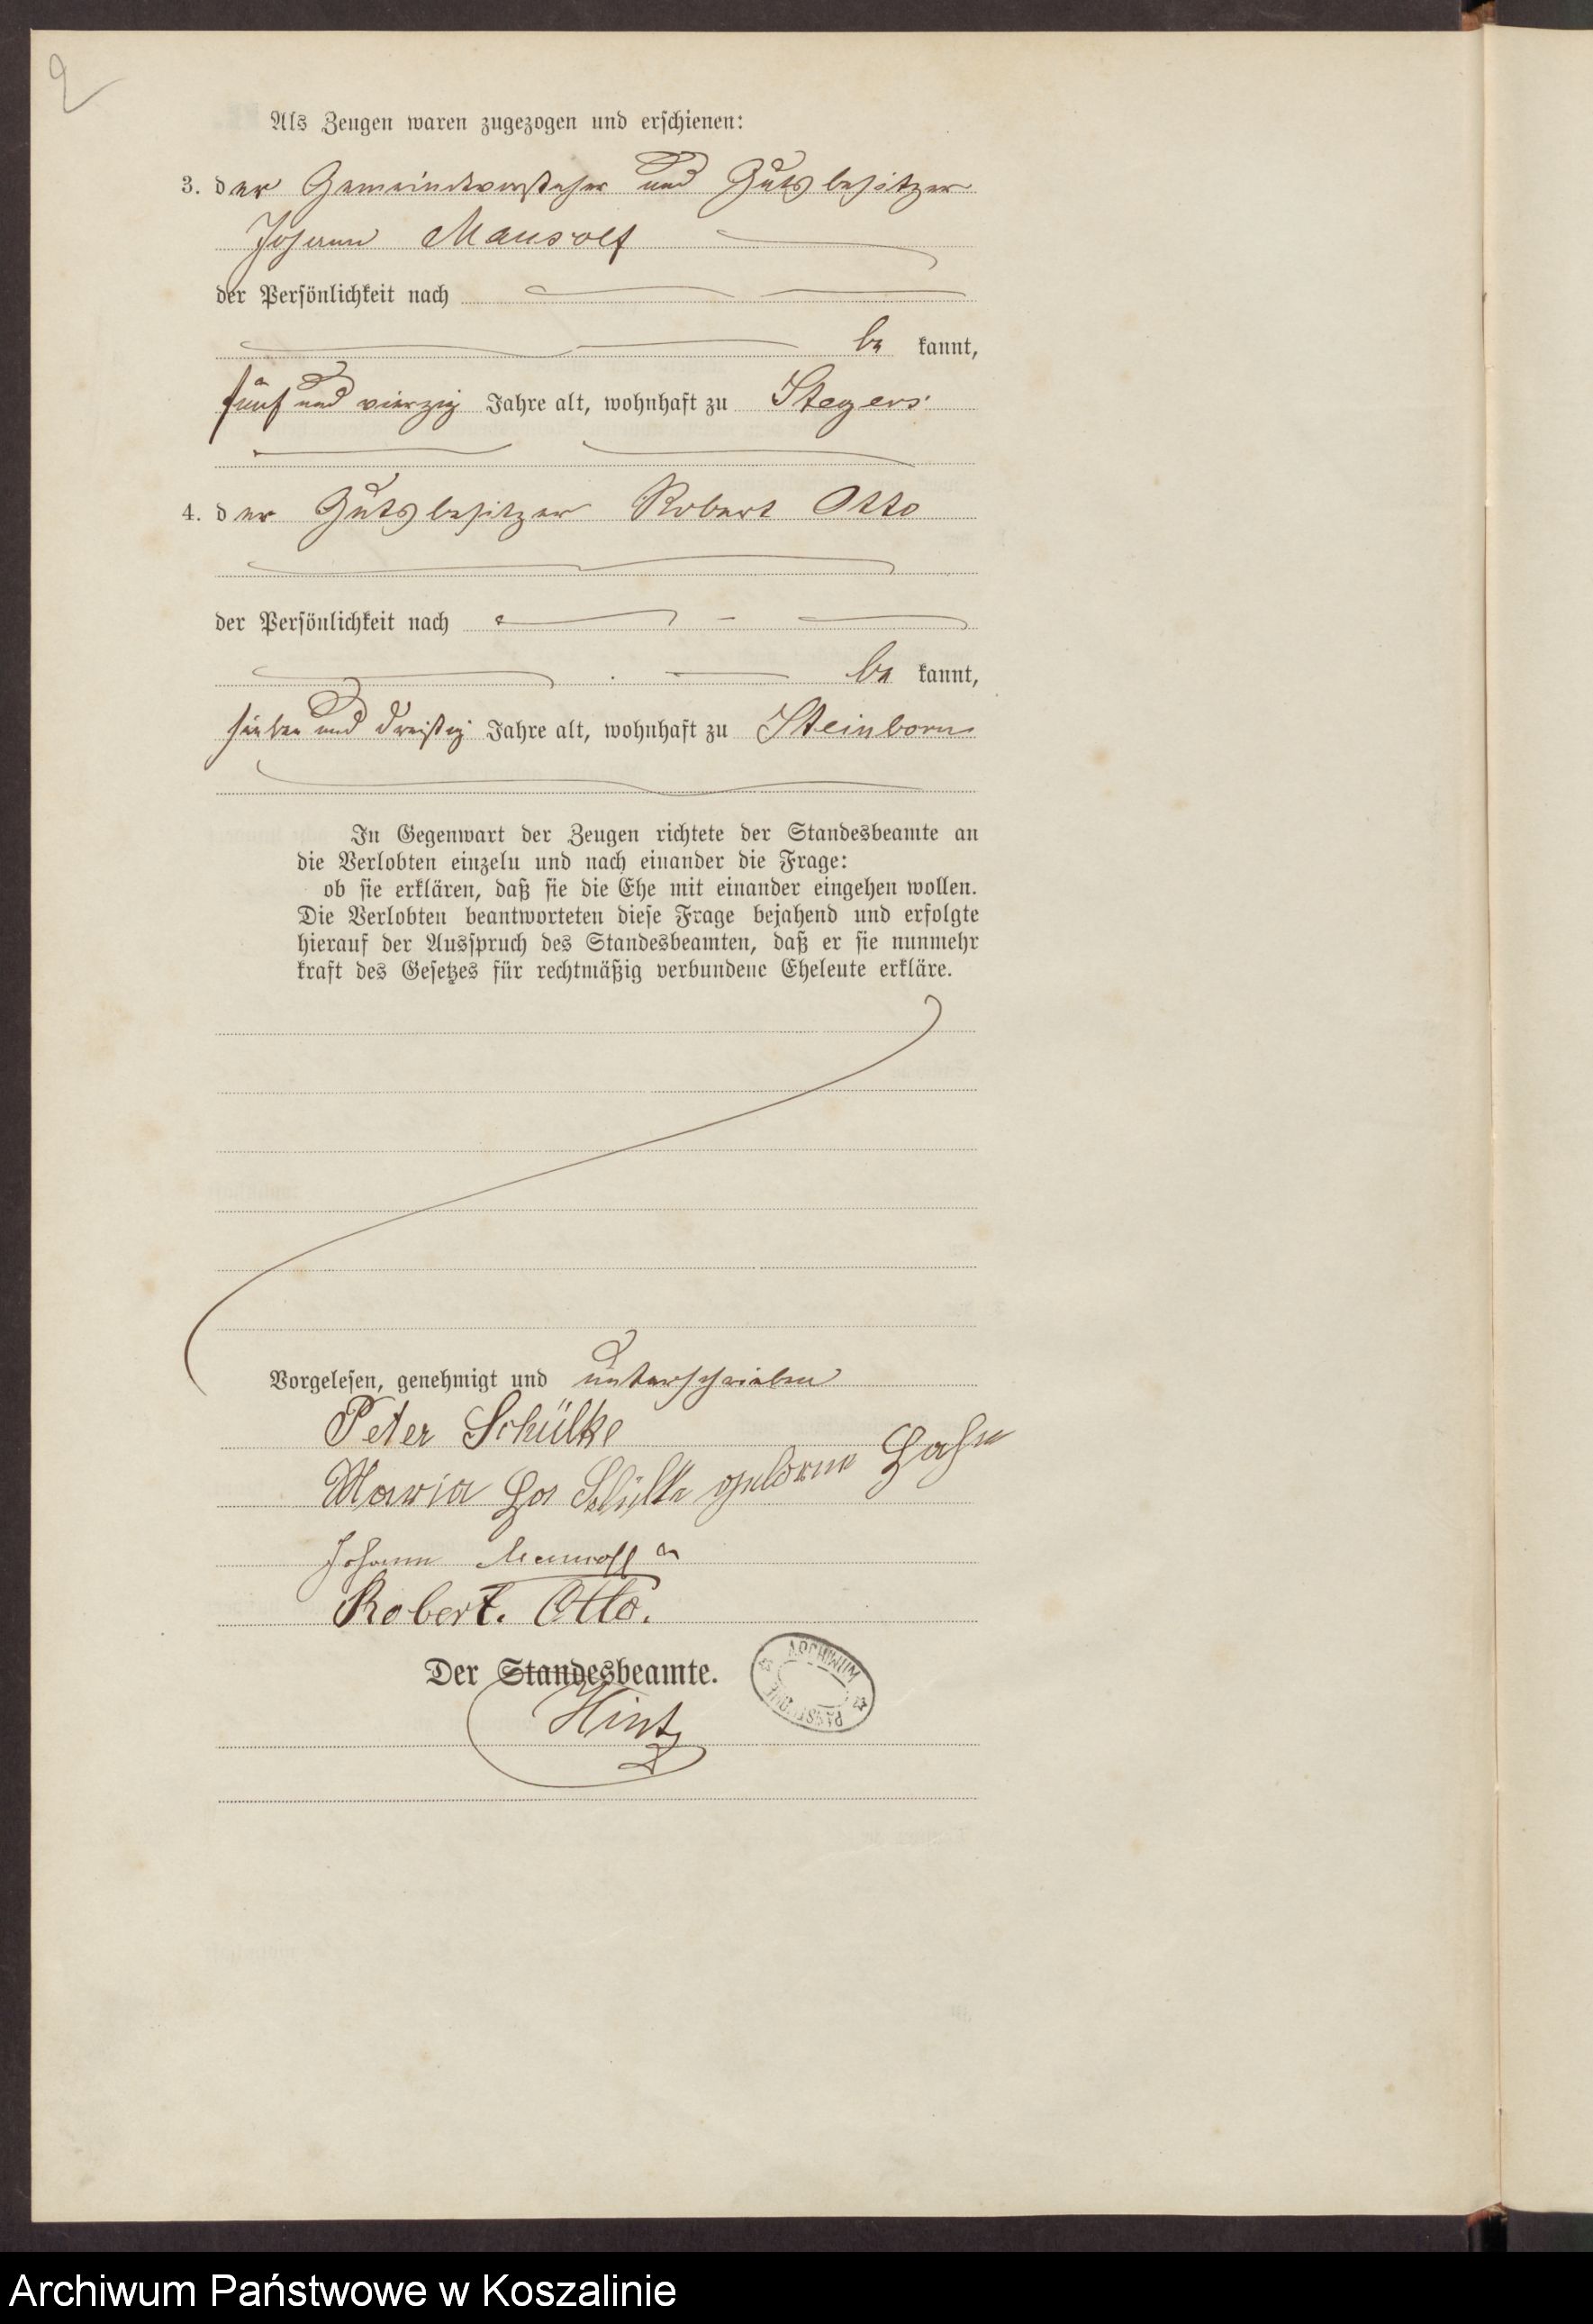 2
Als Zeugen waren zugezogen und erschienen:
3. der Gemeindevorsteher und Gutsbesitzer
Johann Mausolf
der Persönlichkeit nach
be kannt,
fünf und vierzig Jahre alt, wohnhaft zu Stegers
4. der Gutsbesitzer Robert Otto
der Persönlichkeit nach
be kannt,
sieben und dreißig Jahre alt, wohnhaft zu Steinborn
In Gegenwart der Zeugen richtete der Standesbeamte an
die Verlobten einzeln und nach einander die Frage:
ob sie erklären, daß sie die Ehe mit einander eingehen wollen.
Die Verlobten beantworteten diese Frage bejahend und erfolgte
hierauf der Ausspruch des Standesbeamten, daß er sie nunmehr
kraft des Gesetzes für rechtmäßig verbundene Eheleute erkläre.
Vorgelesen, genehmigt und unterschrieben
Peter Schülke
Maria Schülke geborne Hahn
Johann Mausolf
Robert. Otto.
Der Standesbeamte.
Hintz
ARCHIWUM
Archiwum Państwowe w Koszalinie